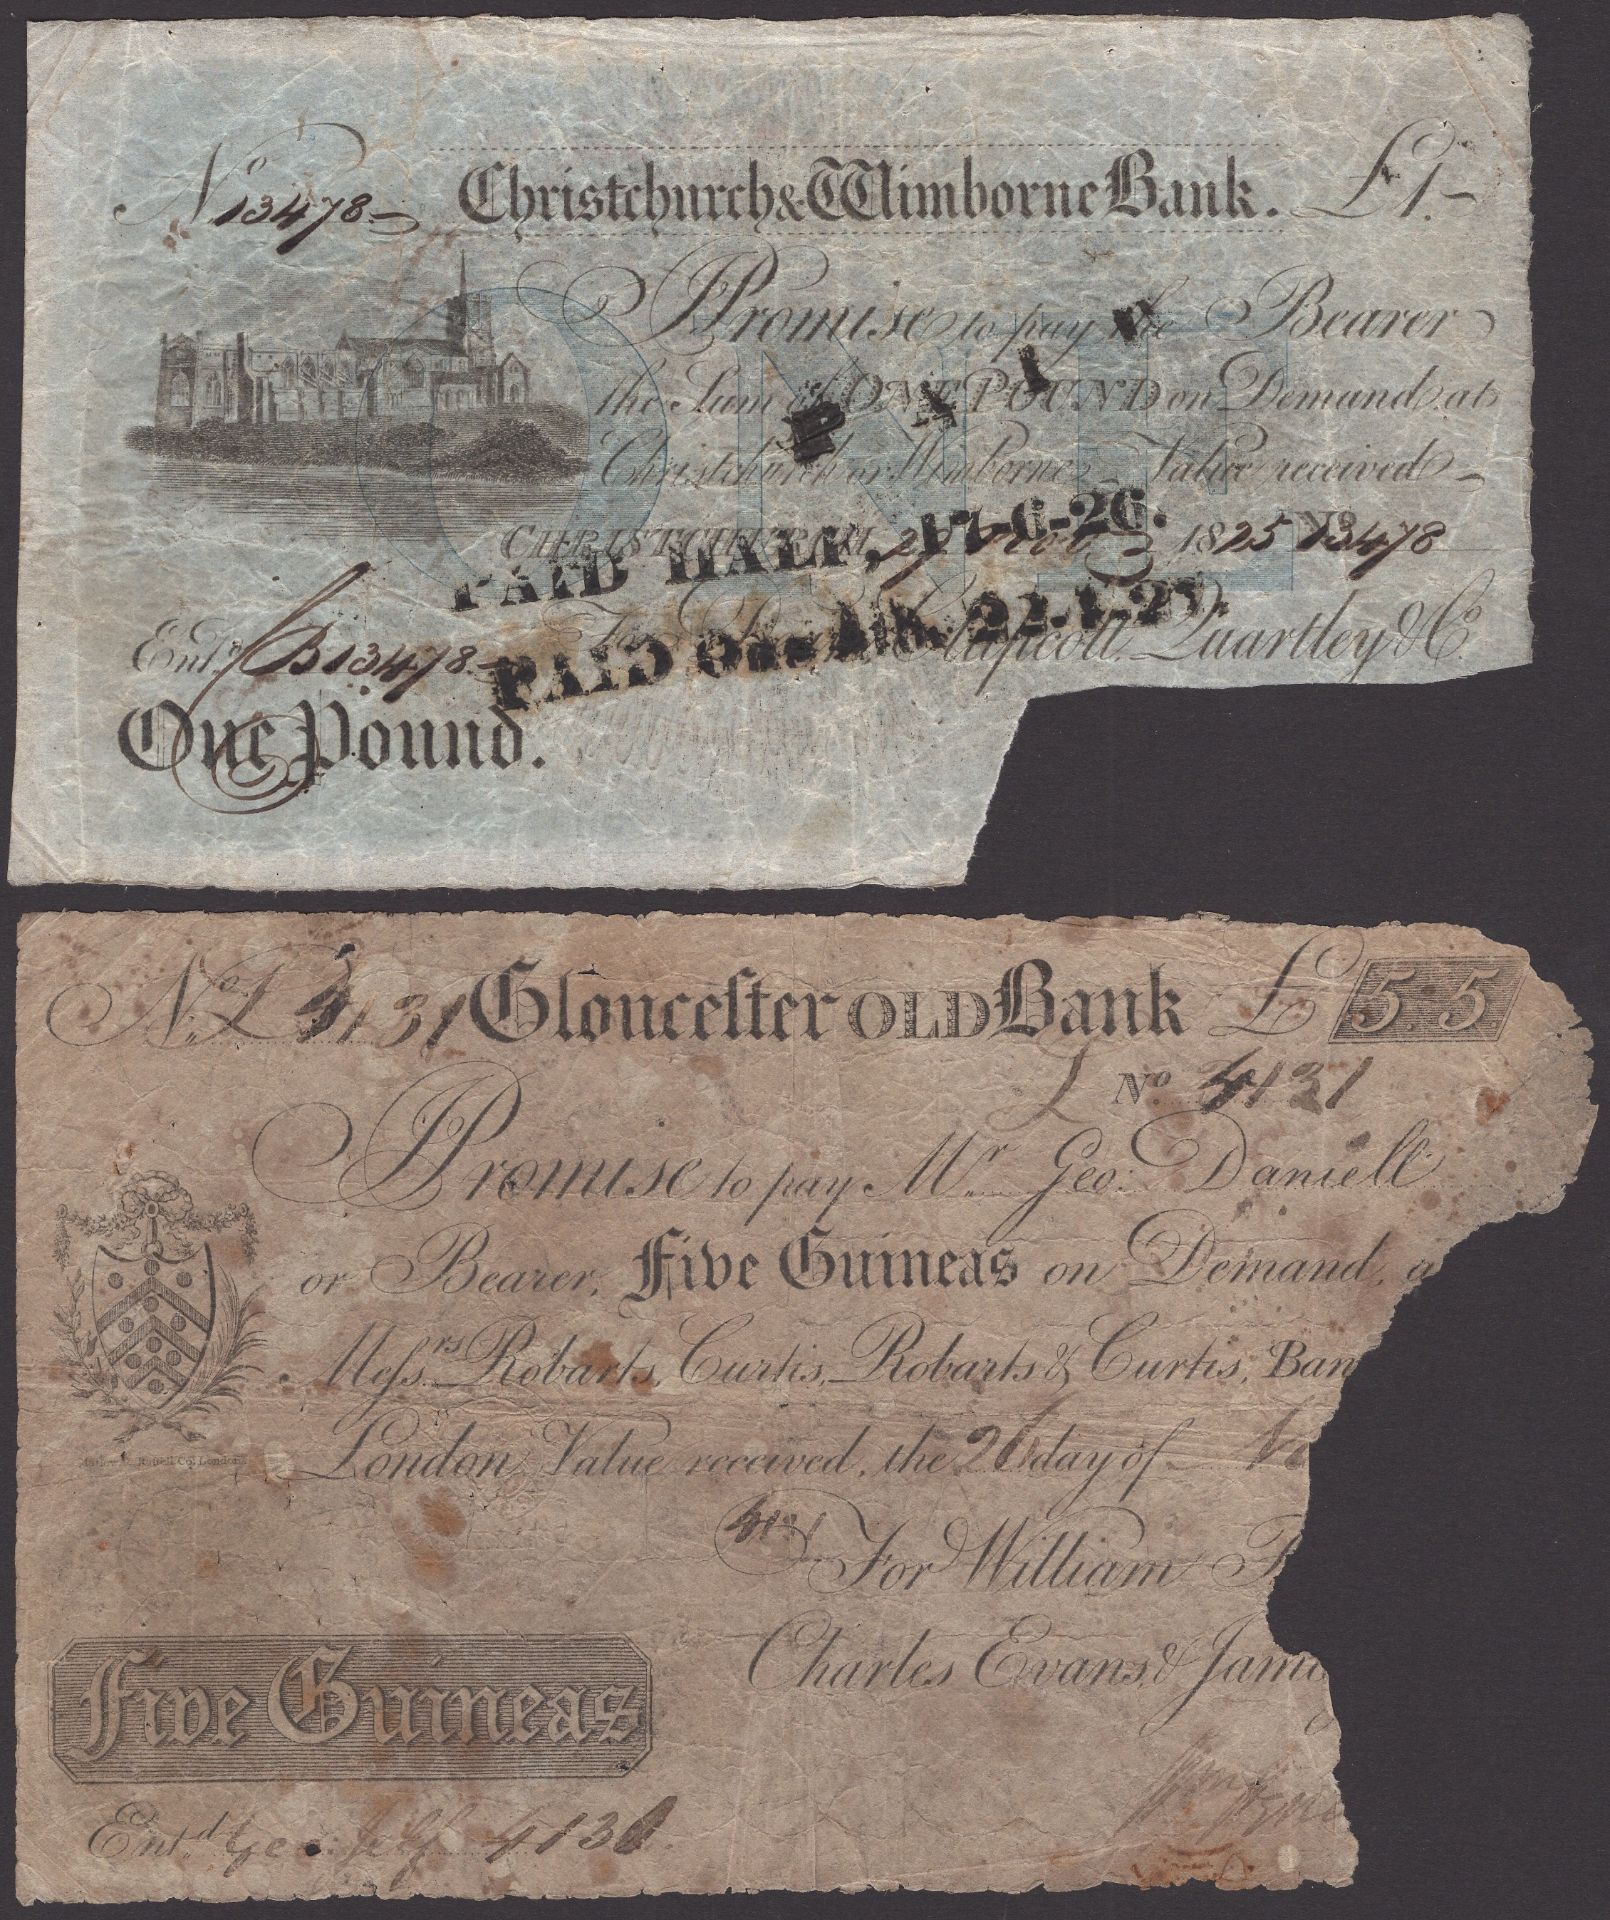 No 13478 Christchurch & Wimborne Bank. £1.-
I Promise to pay the Bearer
the Sum of ONE POUND on Demand at
Christchurch or Wimborne Value received
ONE
PAID
CHRISTCHURCH, 1825 No 13478
PAID HALF,
PAID
Entd. B13478
Quartley & Co
One Pound.
No L 4131 Gloucester OLD Bank £ 5.5.
L No 4131
I Promise to pay Mr Geo: Daniell
or Bearer, Five Guineas on Demand, a
Messrs Robarts, Curtis, Robarts & Curtis, Ban
London Value received, the 26 day of
For William
Charles Evans & Jam
Five Guineas
Entd Geo. Jelf 4131